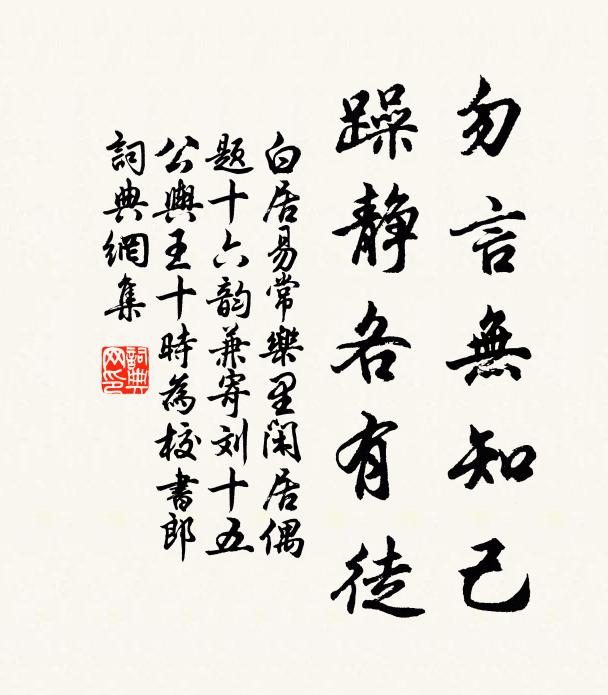 勿言無知己
躁静各有徒
白居易常樂里閑居偶
题十六韵兼寄刘十五
公輿王十時為校書郎
詞典網集
詞典网印